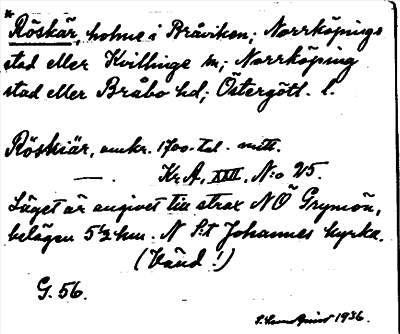 * Röskär, holme i Bråviken; Norrköpings
stad eller Kvillinge sn; Norrköping
stad eller Bråbo hd; Östergötl. l.
Röskiär, omkr. 1700-tal. mitt.
— KrA, XXII, N:o 25.
Läget är angivet till strax NÖ Grymön,
belägen 5½ km. N S:t Johannes kyrka.
(Vänd!)
G. 56.
1936.